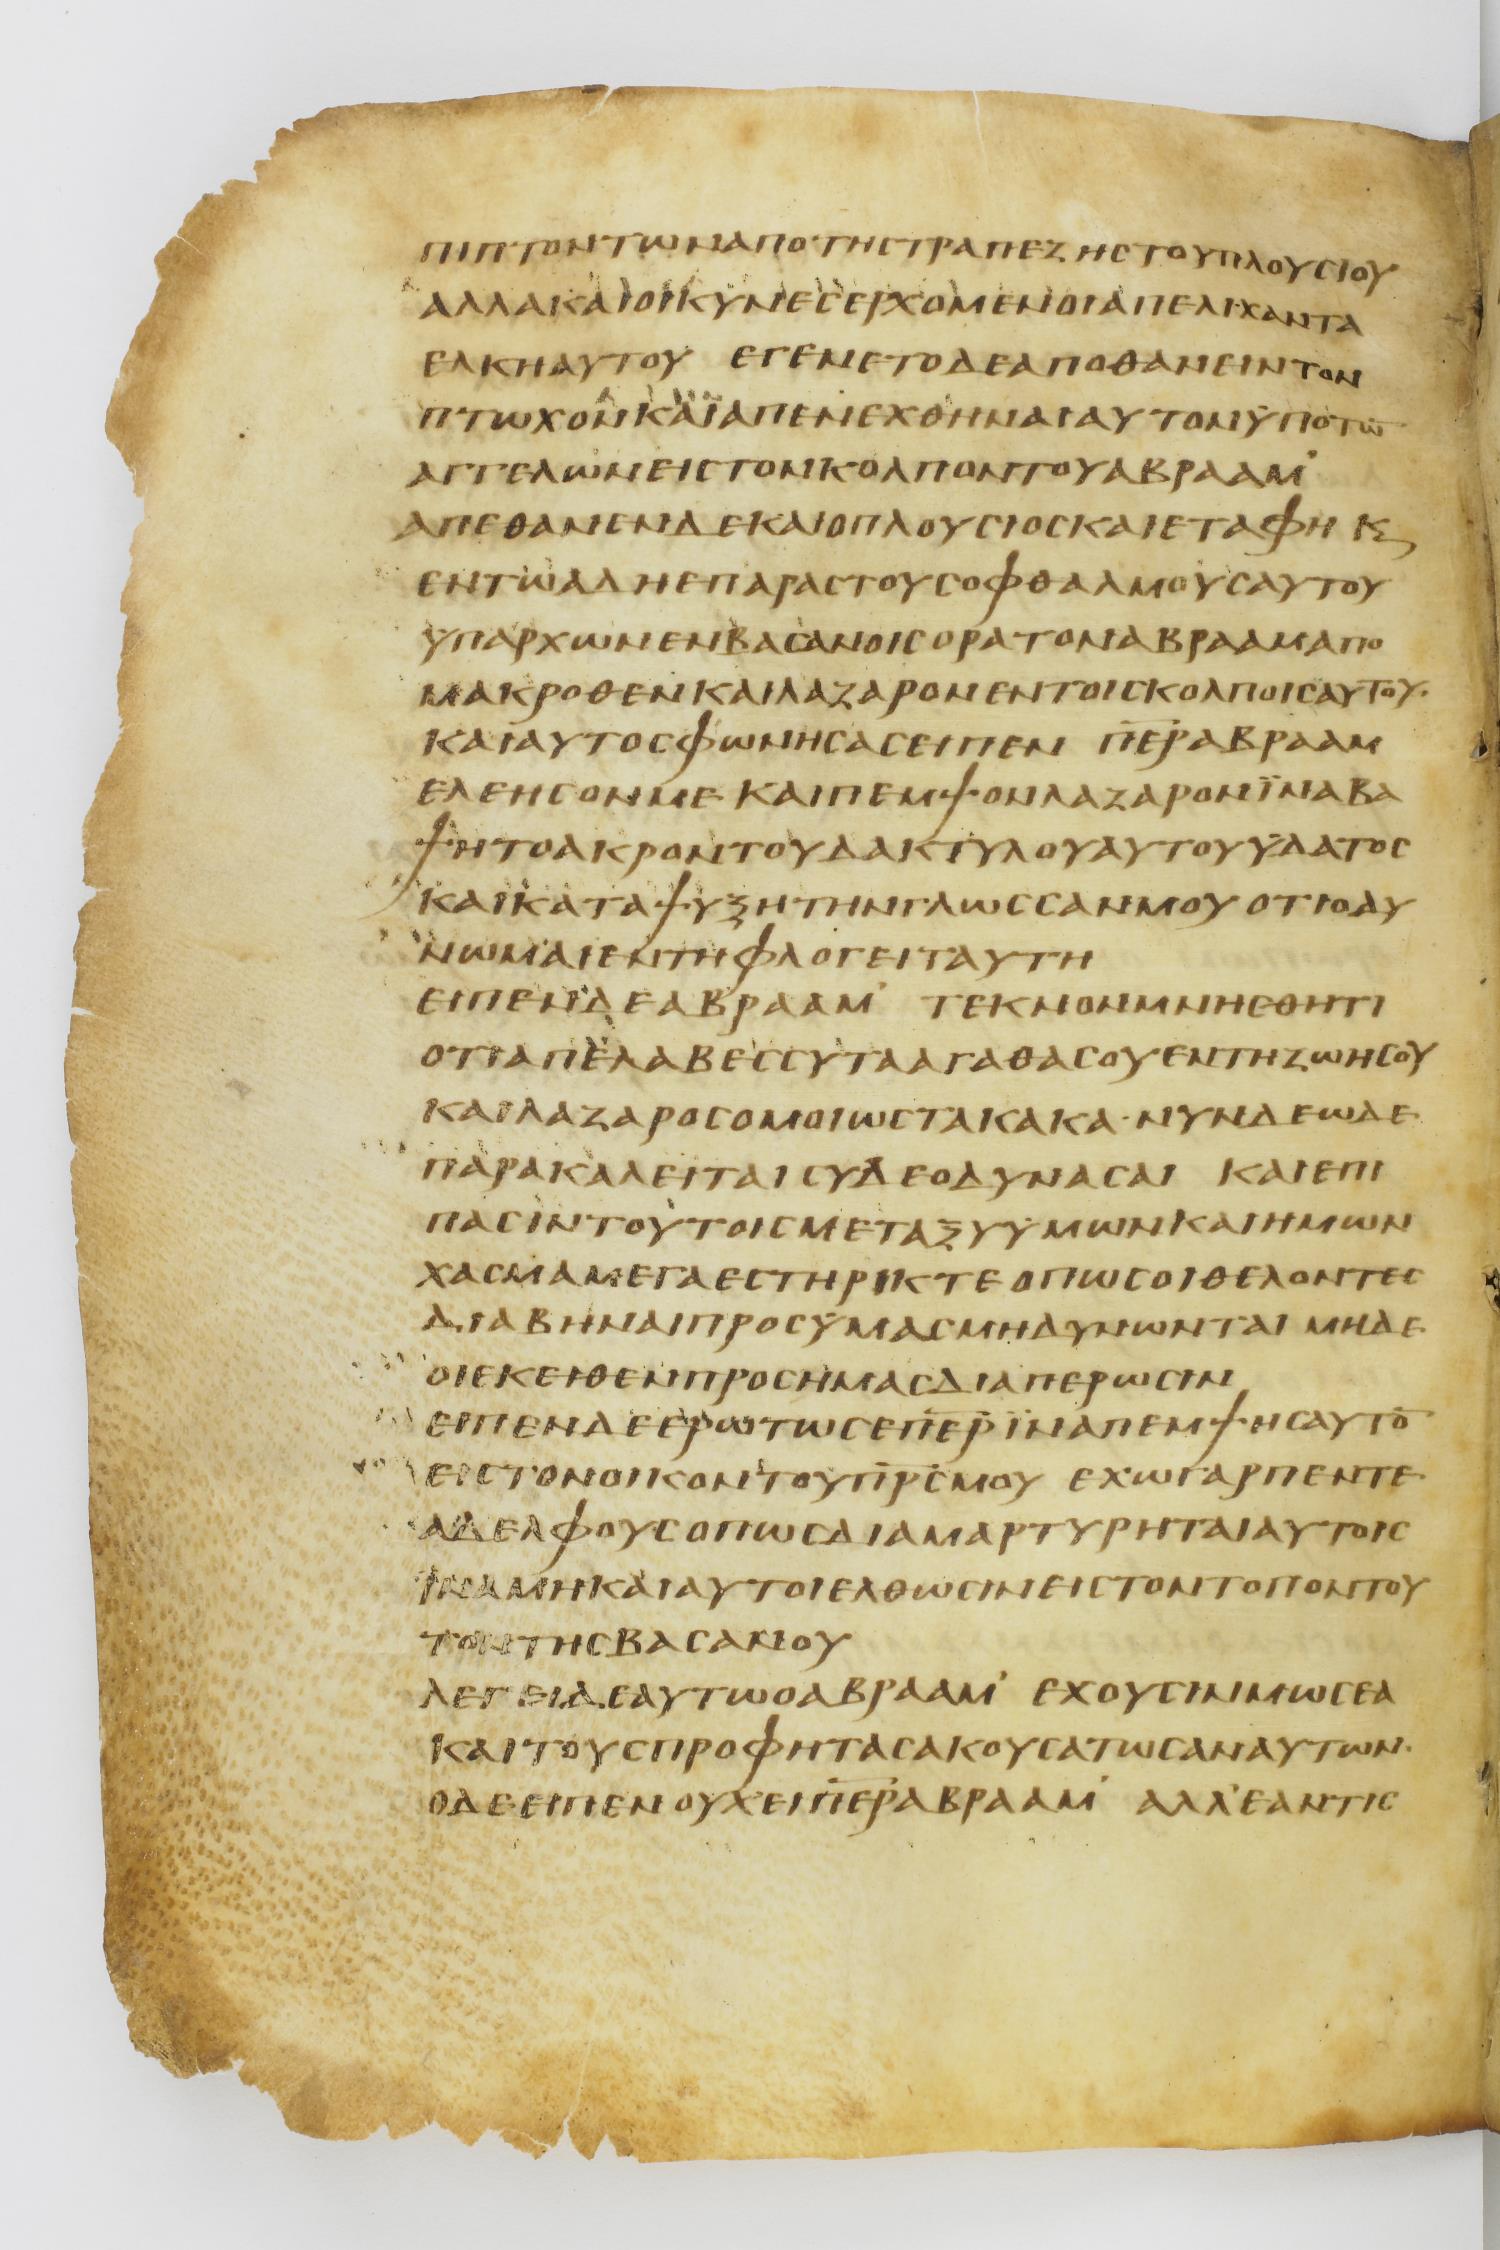 ΠΙΠΤΟΝΤΩΝΑΠΟΤΗСΤΡΑΠΕΖΗСΤΟΥΠΛΟΥСΙΟΥ
ΑΛΛΑΚΑΙΟΙΚΥΝΕСΕΡΧΟΜΕΝΟΙΑΠΕΛΙΧΑΝΤΑ
ΕΛΚΗΑΥΤΟΥ ΕΓΕΝΕΤΟΔΕΑΠΟΘΑΝΕΙΝΤΟΝ
ΠΤΩΧΟΝΚΑΙΑΠΕΝΕΧΘΗΝΑΙΑΥΤΟΝΫΠΟΤΩ̅
ΑΓΓΕΛΩΝΕΙСΤΟΝΚΟΛΠΟΝΤΟΥΑΒΡΑΑΜ'
ΑΠΕΘΑΝΕΝΔΕΚΑΙΟΠΛΟΥСΙΟСΚΑΙΕΤΑΦΗ Ϗ
ΕΝΤΩΑΔΗΕΠΑΡΑСΤΟΥСΟΦΘΑΛΜΟΥСΑΥΤΟΥ
ΫΠΑΡΧΩΝΕΝΒΑСΑΝΟΙСΟΡΑΤΟΝΑΒΡΑΑΜΑΠΟ
ΜΑΚΡΟΘΕΝΚΑΙΛΑΖΑΡΟΝΕΝΤΟΙСΚΟΛΠΟΙСΑΥΤΟΥ·
ΚΑΙΑΥΤΟСΦΩΝΗСΑСΕΙΠΕΝ Π̅Ε̅Ρ̅ΑΒΡΑΑΜ
ΕΛΕΗСΟΝΜΕ ΚΑΙΠΕΜΨΟΝΛΑΖΑΡΟΝΪΝΑΒΑ
ΨΗΤΟΑΚΡΟΝΤΟΥΔΑΚΤΥΛΟΥΑΥΤΟΥΫΔΑΤΟС
ΚΑΙΚΑΤΑΨΥΞΗΤΗΝΓΛΩССΑΝΜΟΥ ΟΤΙΟΔΥ
ΝΩΜΑΙΕΝΤΗΦΛΟΓΕΙΤΑΥΤΗ
ΕΙΠΕΝΔΕΑΒΡΑΑΜ' ΤΕΚΝΟΝΜΝΗСΘΗΤΙ
ΟΤΙΑΠΕΛΑΒΕССΥΤΑΑΓΑΘΑСΟΥΕΝΤΗΖΩΗСΟΥ
ΚΑΙΛΑΖΑΡΟСΟΜΟΙΩСΤΑΚΑΚΑ·ΝΥΝΔΕΩΔΕ
ΠΑΡΑΚΑΛΕΙΤΑΙСΥΔΕΟΔΥΝΑСΑΙ ΚΑΙΕΠΙ
ΠΑСΙΝΤΟΥΤΟΙСΜΕΤΑΞΥΫΜΩΝΚΑΙΗΜΩΝ
ΧΑСΜΑΜΕΓΑΕСΤΗΡΙΚΤΕΟΠΩСΟΙΘΕΛΟΝΤΕС
ΔΙΑΒΗΝΑΙΠΡΟСΫΜΑСΜΗΔΥΝΩΝΤΑΙ ΜΗΔΕ
ΟΙΕΚΕΙΘΕΝΠΡΟСΗΜΑСΔΙΑΠΕΡΩСΙΝ
ΕΙΠΕΝΔΕΕΡΩΤΩСΕΠ̅Ε̅Ρ̅ΪΝΑΠΕΜΨΗСΑΥΤΟ̅
ΕΙСΤΟΝΟΙΚΟΝΤΟΥΠ̅Ρ̅С̅ΜΟΥ ΕΧΩΓΑΡΠΕΝΤΕ
ΑΔΕΛΦΟΥСΟΠΩСΔΙΑΜΑΡΤΥΡΗΤΑΙΑΥΤΟΙС
ΪΝΑΜΗΚΑΙΑΥΤΟΙΕΛΘΩСΙΝΕΙСΤΟΝΤΟΠΟΝΤΟΥ
ΤΟΝΤΗСΒΑСΑΝΟΥ
ΛΕΓΕΙΔΕΑΥΤΩΟΑΒΡΑΑΜ' ΕΧΟΥСΙΝΜΩСΕΑ
ΚΑΙΤΟΥСΠΡΟΦΗΤΑСΑΚΟΥСΑΤΩСΑΝΑΥΤΩΝ·
ΟΔΕΕΙΠΕΝΟΥΧΕΙΠ̅Ε̅Ρ̅ΑΒΡΑΑΜ' ΑΛΛ'ΕΑΝΤΙС